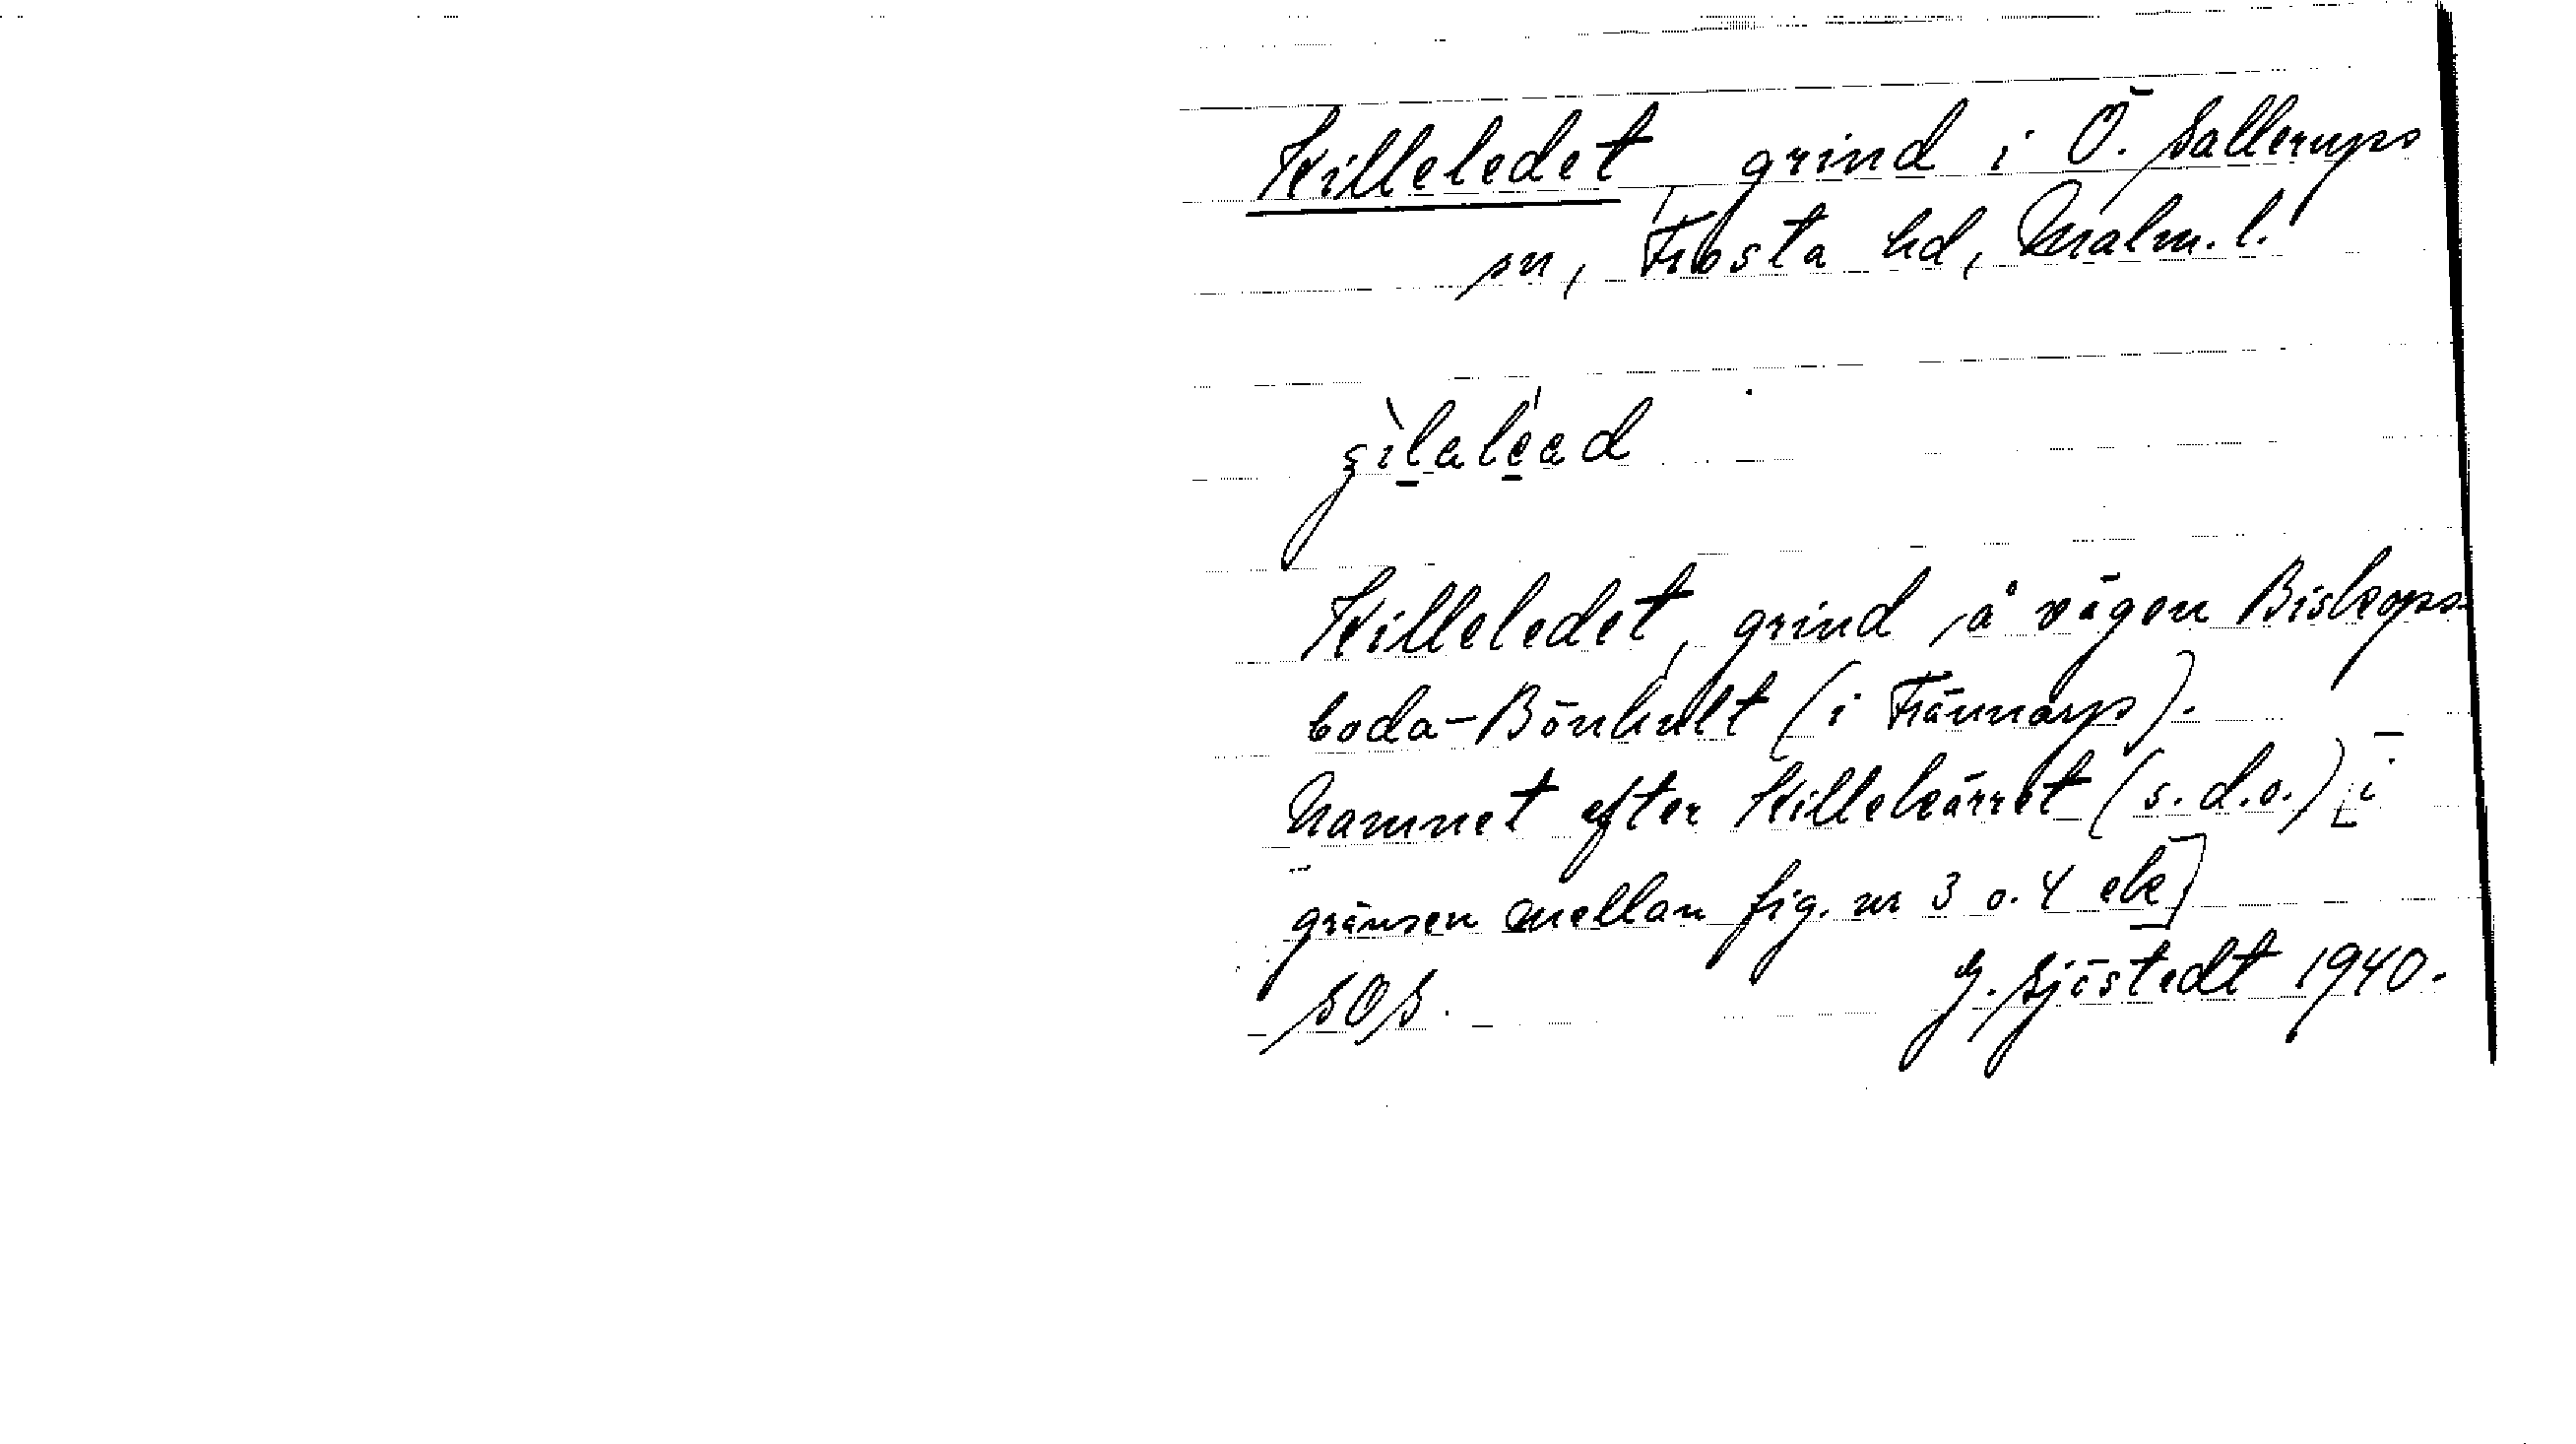 Killeledet, grind i Ö. Sallerups
sn, Frosta hd, Malm. l.
Killeledet, grind å vägen Biskops-
boda-Bönhult (i Frännarp).
Namnet efter Killekärret (s.d.o.) [i
gränsen mellan fig. nr 3 o. 4 ek]
SOS. G. Sjöstedt 1940.